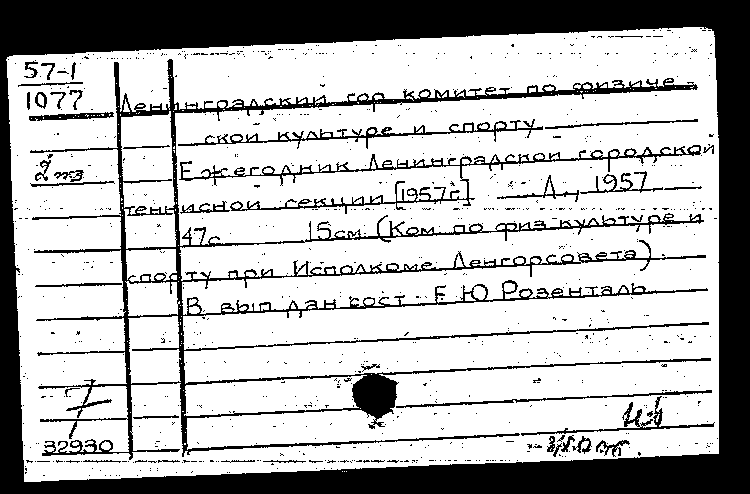 57-1
1077
Ленинградский гор комитет по физиче-
ской культуре и спорту
2 экз
Ежегодник Ленинградской городской
теннисной секции [1957г.] Л., 1957
47с 15см (Ком. по физ культуре и
спорту при Исполкоме Ленгорсовета).
В вып дан сост. Е Ю Розенталь
7
32930